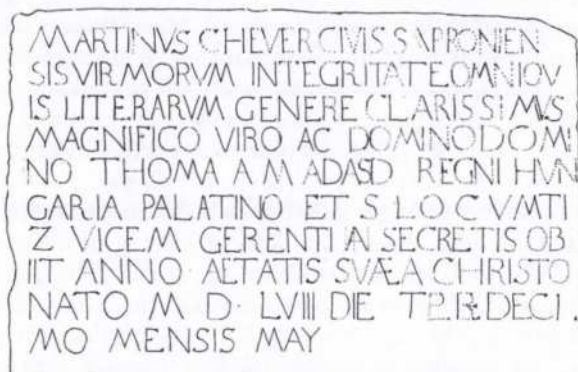 MARTINVS CHEVER CIVIS SVPRONIEN
SIS VIR MORVM INTEGRITATE OMNIQV
IS LITERARVM GENERE CLARISSIMVS
MAGNIFICO VIRO AC DOMINO DOMI
NO THOMA A MADASD REGNI HVN
GARIA PALATINO ET S LOCVMTI
Z VICEM GERENTI A SECRETIS OB
IIT ANNO AETATIS SVÆ A CHRISTO
NATO M D · LVIII DIE TREDECI .
MO MENSIS MAY